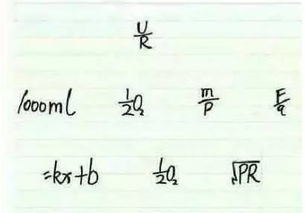 U/R
1000ml ½O₂ m/ρ F/q
=kx+b ½O₂ √PR